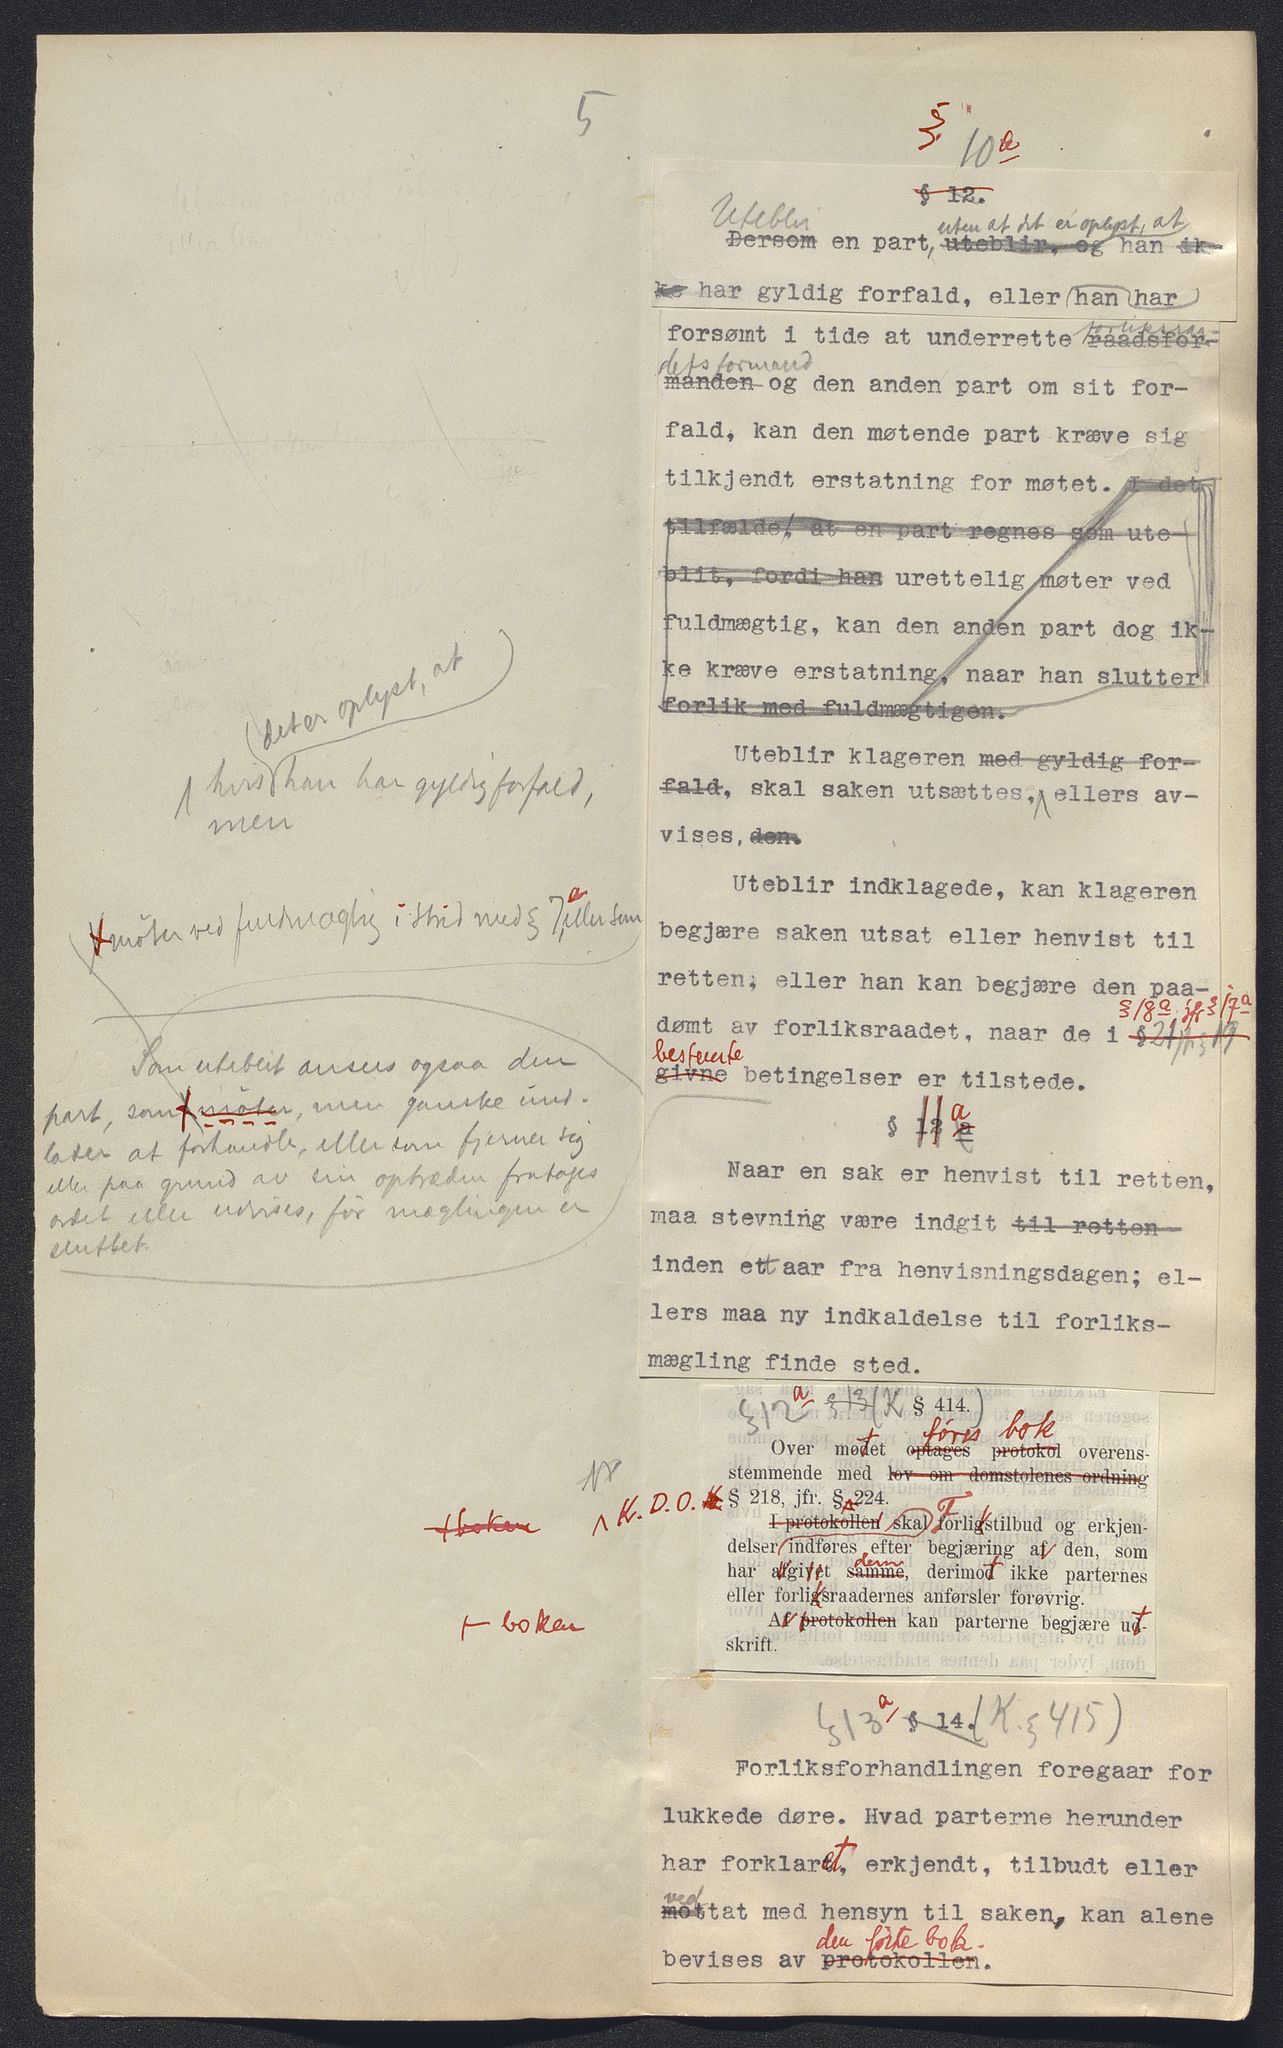 5
§ 10 a
§ 12.
Uteblir uten at det er oplyst, at
Dersom en part, uteblir, og han ik-
ke har gyldig forfald, eller han har
forliksraa-
forsømt i tide at underrette raadsfor-
dets formand
manden og den anden part om sit for-
fald, kan den møtende part kræve sig
tilkjendt erstatning for møtet. I det
tilfælde, at en part regnes som ute-
blit, fordi han urettelig møter ved
fuldmægtig, kan den anden part dog ik-
ke kræve erstatning, naar han slutter
forlik med fuldmægtigen.
det er oplyst, at
hvis han har gyldig forfald,
men
Uteblir klageren med gyldig for-
fald, skal saken utsættes, ellers av-
vises, den.
møter ved fuldmægtig i strid med § 7 a, eller som
Uteblir indklagede, kan klageren
begjære saken utsat eller henvist til
retten; eller han kan begjære den paa-
§ 18 a jfr § 17 a
dømt av forliksraadet, naar de i § 21 jfr § 19
bestemte
givne betingelser er tilstede.
Som uteblit ansees ogsaa den
part, som møter, men ganske und-
later at forhandle, eller som fjerner sig
eller paa grund av sin optræden fratages
ordet eller utvises, før mæglingen er
sluttet.
§ 11 a
Naar en sak er henvist til retten,
maa stevning være indgit til retten
inden ett aar fra henvisningsdagen; el-
lers maa ny indkaldelse til forliks-
mægling finde sted.
§ 12 a § 13 (K § 414.)
føres bok
Over mødet optages protokol overens-
stemmende med lov om domstolenes ordning
K. D. O. § 218, jfr. § 224.
+ boken
I protokollen skal forligstilbud og erkjen-
delser indføres efter begjæring af den, som
dem
har afgivet samme, derimod ikke parternes
eller forligsraadernes anførsler forøvrig.
+ boken
Af protokollen kan parterne begjære ud-
skrift.
§ 13 a § 14. (K. § 415)
Forliksforhandlingen foregaar for
lukkede døre. Hvad parterne herunder
har forklaret, erkjendt, tilbudt eller
ved
mottat med hensyn til saken, kan alene
den førte bok.
bevises av protokollen.